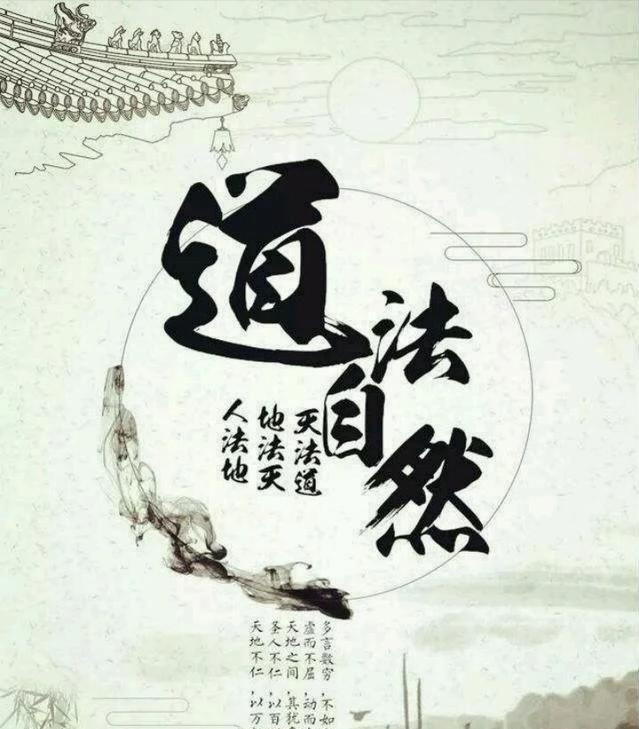 道法自然
人法地
地法灭
灭法道
天地不仁，以万
圣人不仁，以百
天地之间，其犹
虚而不屈，动而
多言数穷，不如